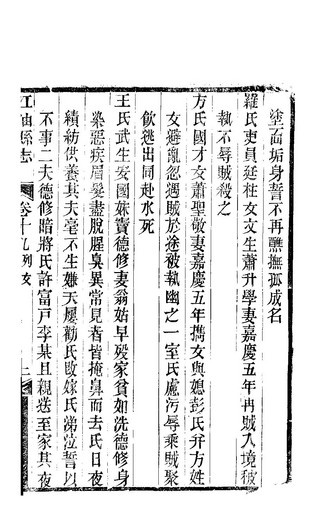 塗面垢身誓不再醮撫孤成名
羅氏吏員廷柱女文生蕭升學妻嘉慶五年冉賊入境被
執不辱賊殺之
方氏國才女蕭聖敬妻嘉慶五年攜女與媳彭氏并方姓
女避亂忽遇賊於途被執幽之一室氏慮污辱乘賊聚
飲逃出同赴水死
王氏武生安國妹賣德修妻翁姑早歿家貧如洗德修身
染惡疾眉髮盡脫腥臭異常見者皆掩鼻而去氏日夜
績紡供養其夫毫不生嫌夫屢勸氏改嫁氏涕泣誓以
不事二夫德修暗將氏許富戶李某且親送至家其夜
江油縣志
卷十九列女
上